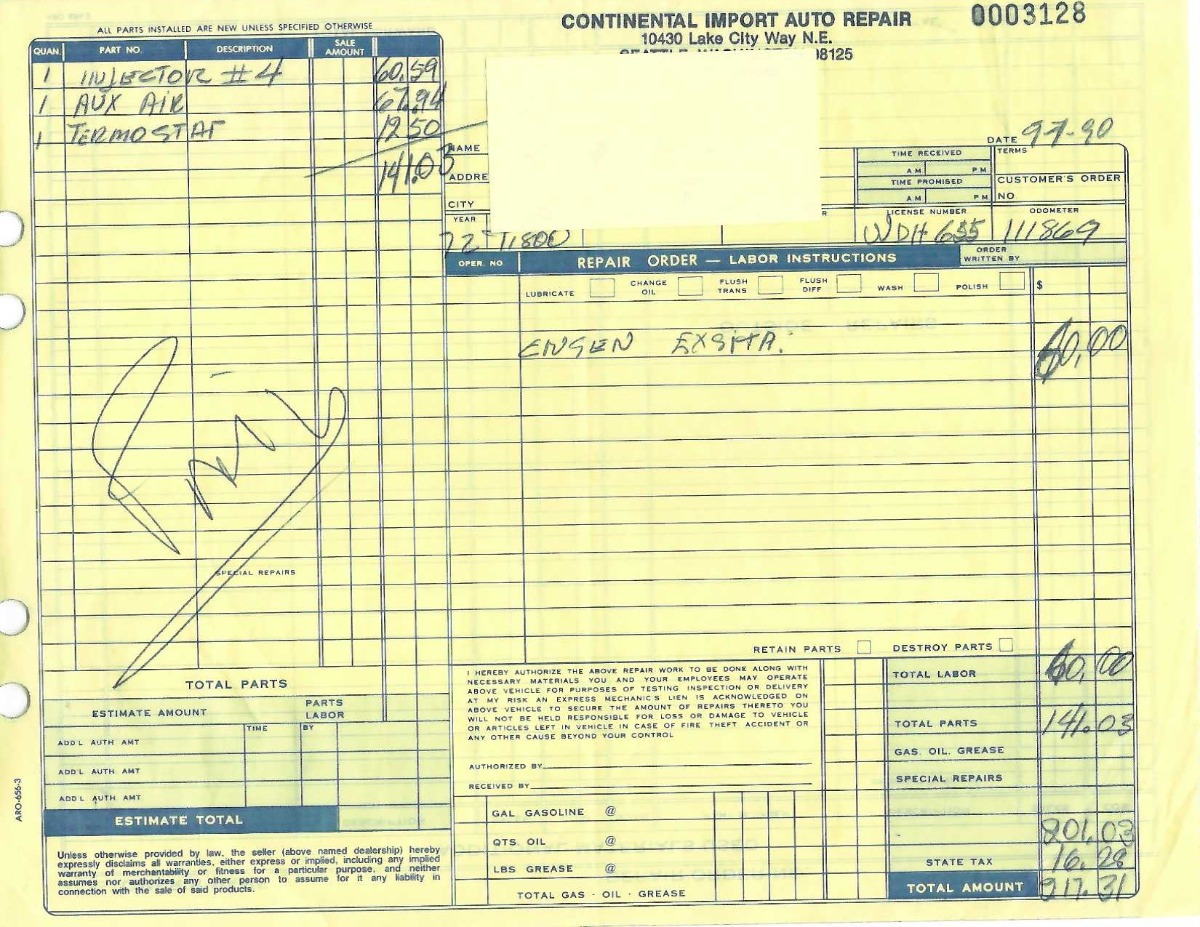 ALL PARTS INSTALLED ARE NEW UNLESS SPECIFIED OTHERWISE
CONTINENTAL IMPORT AUTO REPAIR
0003128
10430 Lake City Way N.E.
98125
QUAN. PART NO. DESCRIPTION SALE AMOUNT
1 INJECTOR #4 60.59
1 AUX AIR 67.94
1 TERMOSTAT 12.50
141.03
DATE 9-7-90
NAME
ADDRE
CITY
TIME RECEIVED
AM PM
TIME PROMISED
AM PM
TERMS
CUSTOMER'S ORDER
NO
YEAR
LICENSE NUMBER
ODOMETER
72 T1800
WDH 655
111869
OPER. NO REPAIR ORDER — LABOR INSTRUCTIONS ORDER WRITTEN BY
LUBRICATE CHANGE OIL FLUSH TRANS FLUSH DIFF WASH POLISH $
ENGEN EXSHA. 60,00
SPECIAL REPAIRS
RETAIN PARTS DESTROY PARTS
TOTAL PARTS
ESTIMATE AMOUNT PARTS LABOR
TIME BY
ADD'L AUTH AMT
ADD'L AUTH AMT
ADD'L AUTH AMT
ESTIMATE TOTAL
ARO-656-3
Unless otherwise provided by law, the seller (above named dealership) hereby
expressly disclaims all warranties, either express or implied, including any implied
warranty of merchantability or fitness for a particular purpose, and neither
assumes nor authorizes any other person to assume for it any liability in
connection with the sale of said products.
I HEREBY AUTHORIZE THE ABOVE REPAIR WORK TO BE DONE ALONG WITH
NECESSARY MATERIALS YOU AND YOUR EMPLOYEES MAY OPERATE
ABOVE VEHICLE FOR PURPOSES OF TESTING INSPECTION OR DELIVERY
AT MY RISK AN EXPRESS MECHANIC'S LIEN IS ACKNOWLEDGED ON
ABOVE VEHICLE TO SECURE THE AMOUNT OF REPAIRS THERETO YOU
WILL NOT BE HELD RESPONSIBLE FOR LOSS OR DAMAGE TO VEHICLE
OR ARTICLES LEFT IN VEHICLE IN CASE OF FIRE THEFT ACCIDENT OR
ANY OTHER CAUSE BEYOND YOUR CONTROL
AUTHORIZED BY
RECEIVED BY
GAL GASOLINE @
QTS OIL @
LBS GREASE @
TOTAL GAS - OIL - GREASE
TOTAL LABOR 60,00
TOTAL PARTS 141.03
GAS. OIL. GREASE
SPECIAL REPAIRS
201.03
STATE TAX 16.28
TOTAL AMOUNT 217.31